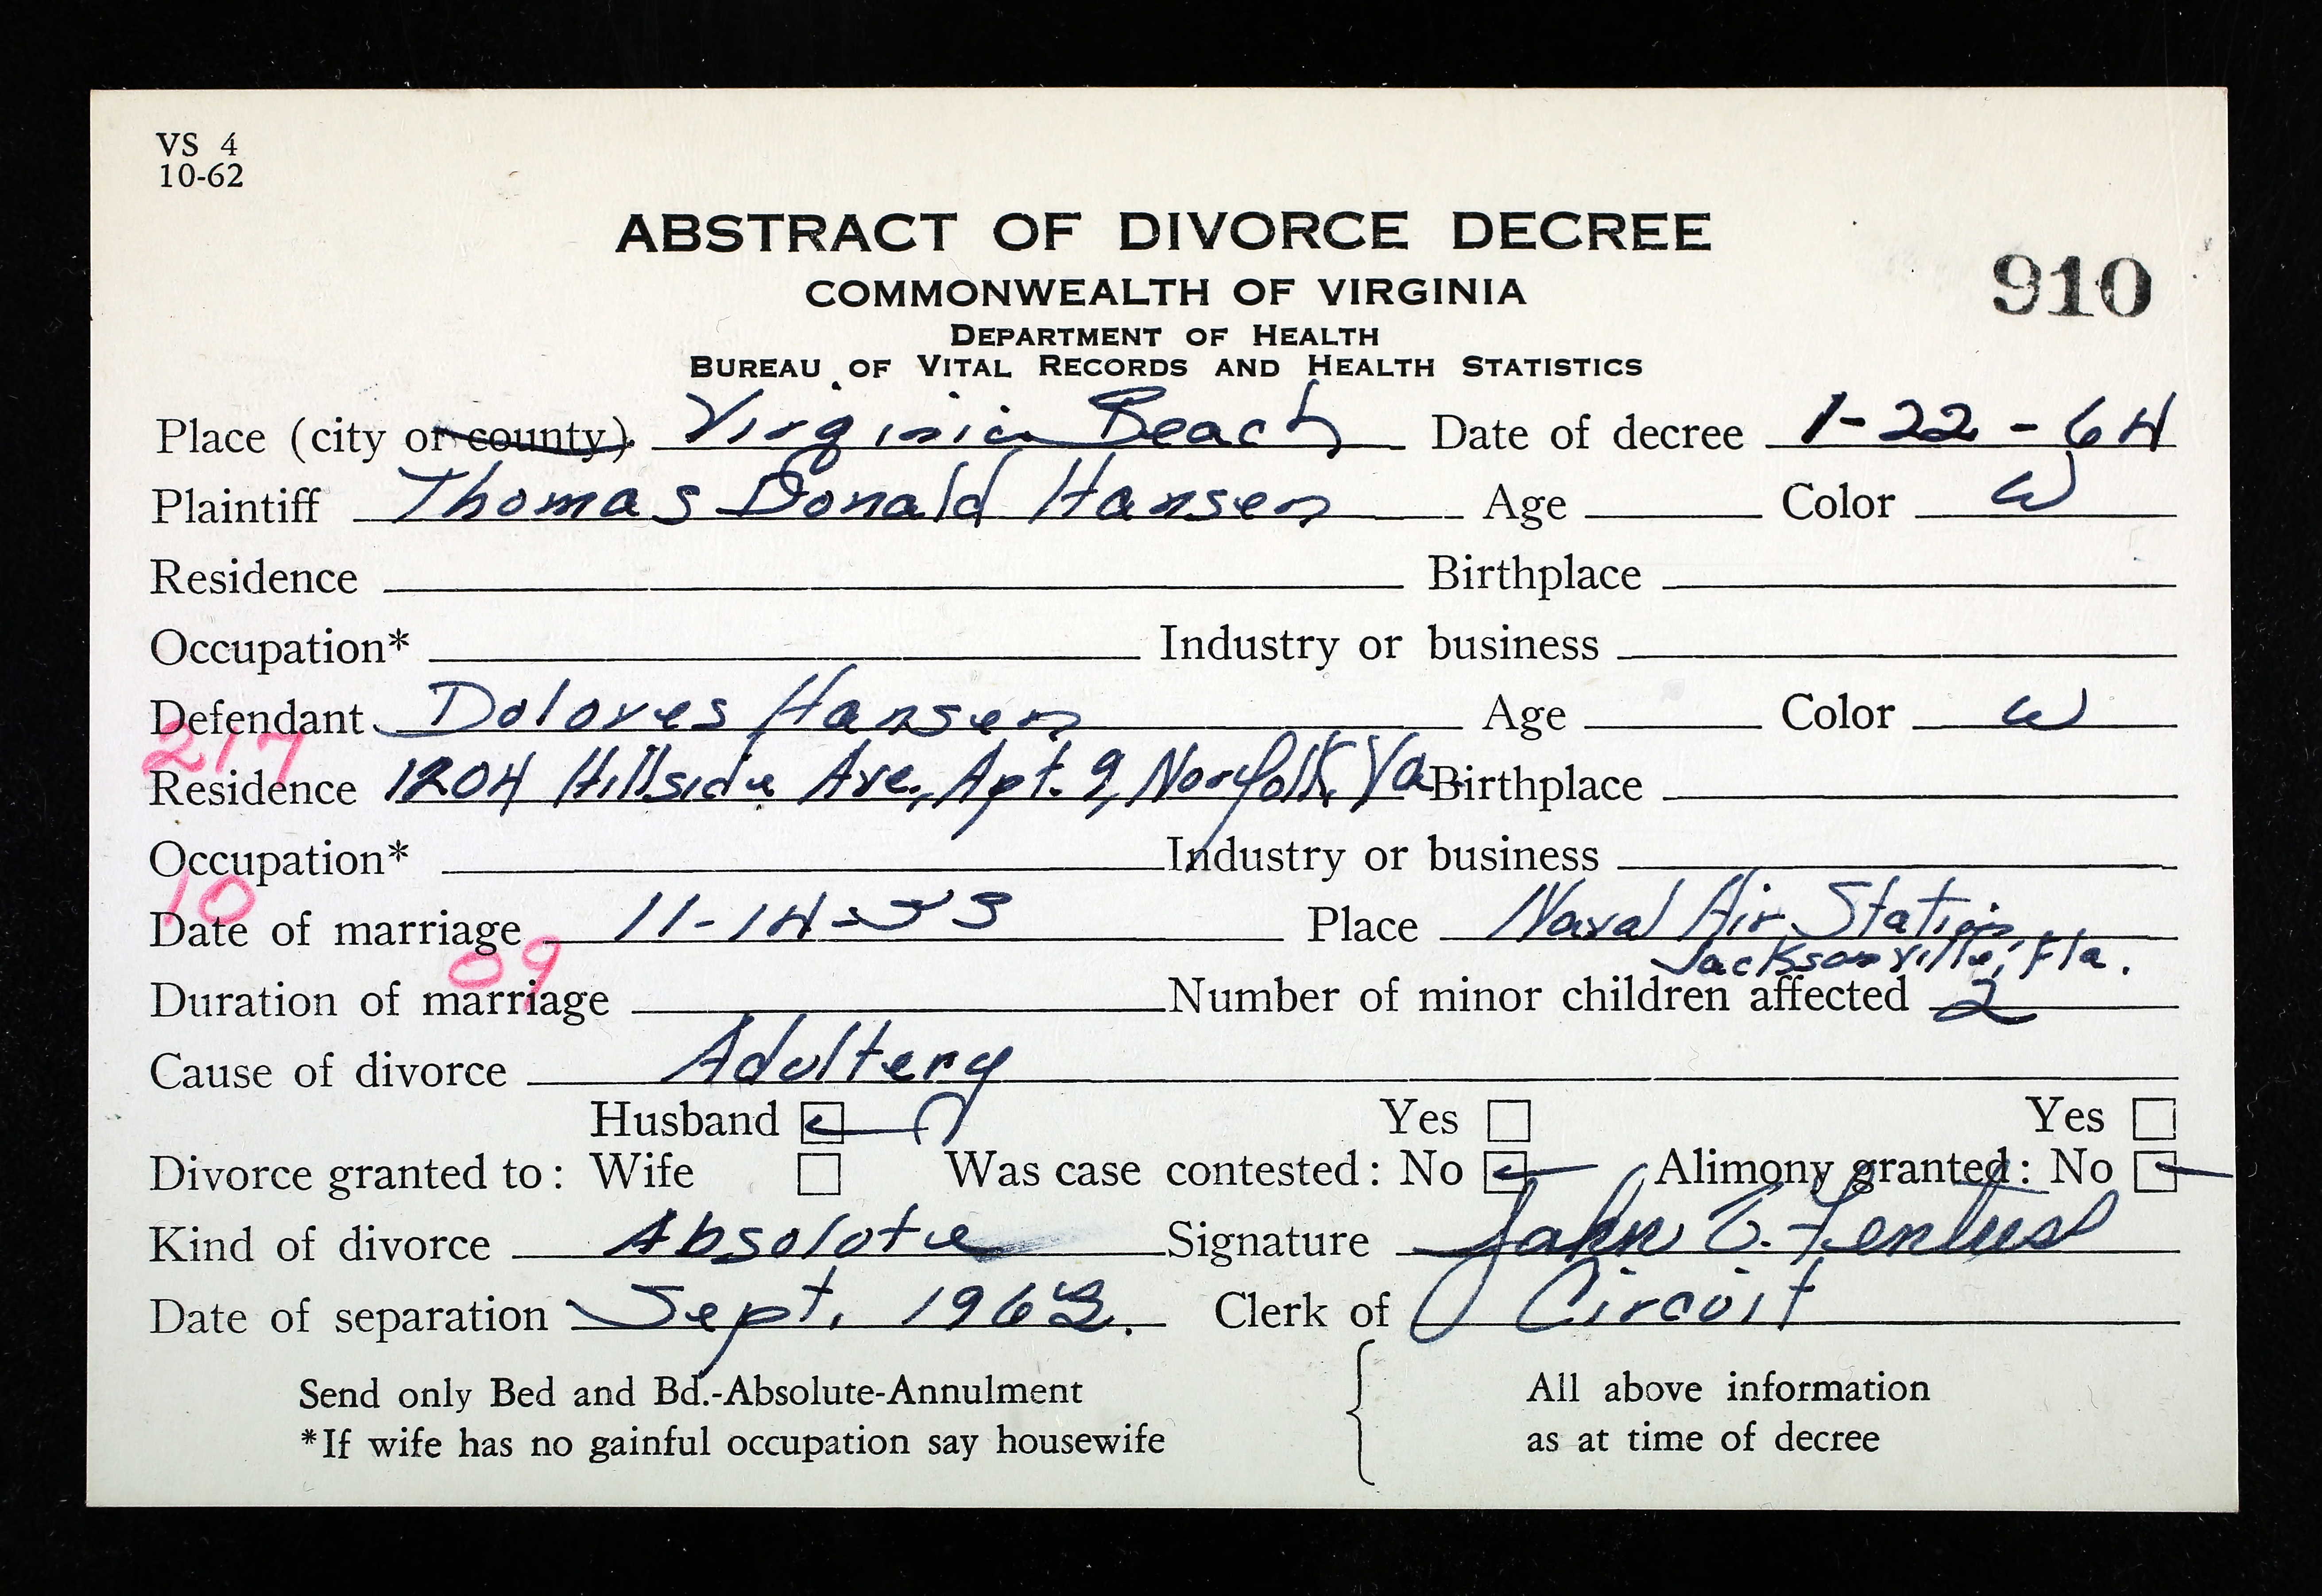 VS 4
10-62
ABSTRACT OF DIVORCE DECREE
910
COMMONWEALTH OF VIRGINIA
DEPARTMENT OF HEALTH
BUREAU OF VITAL RECORDS AND HEALTH STATISTICS
Place (city or county) Virginia Beach Date of decree 1-22-64
Plaintiff Thomas Donald Hansen Age Color W
Residence Birthplace
Occupation* Industry or business
Defendant Dolores Hansen Age Color W
217
Residence 1204 Hillside Ave., Apt. 9, Norfolk, Va. Birthplace
Occupation* Industry or business
10
Date of marriage 11-14- Place Naval Air Station,
Jacksonville, Fla.
09
Duration of marriage Number of minor children affected 2
Cause of divorce Adultery
Husband Yes Yes
Divorce granted to: Wife Was case contested: No Alimony granted: No
Kind of divorce Absolute Signature John
Date of separation Sept. Clerk of Circuit
Send only Bed and Bd.-Absolute-Annulment All above information
*If wife has no gainful occupation say housewife as at time of decree